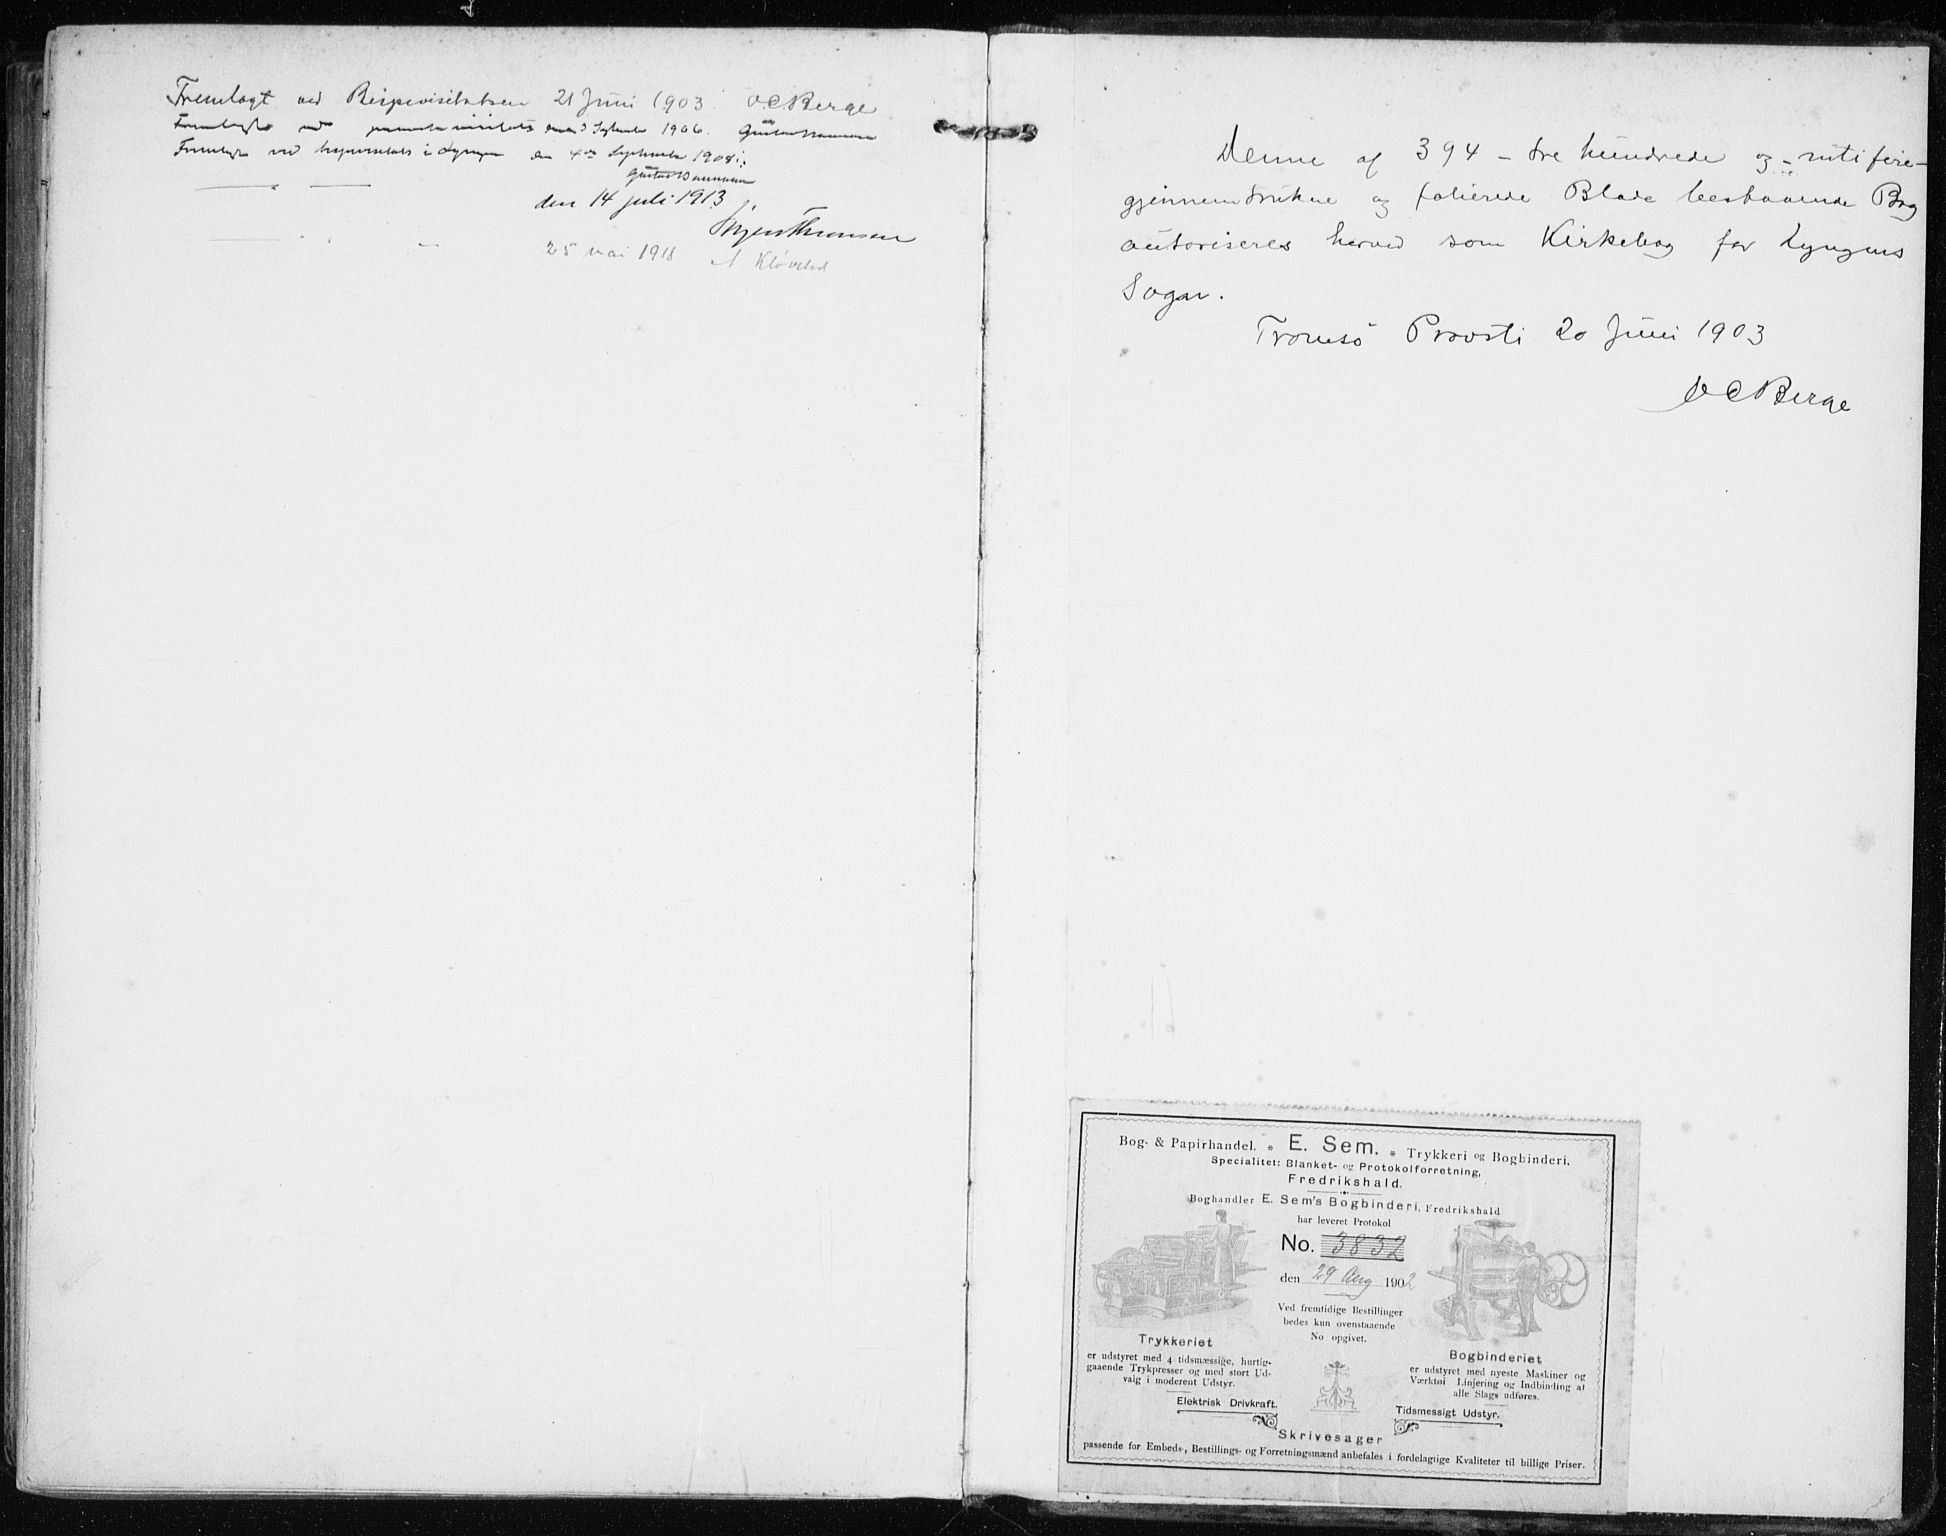 Fremlagt ved Bispevisitatsen 21 Juni 1903. O.C.Berge
Fremlagt ved September 1906.
Fremlagt ved bispevisitats i Lyngen den 4de September 1908
den 14 juli 1913
25 mai 1918 A. Kløvstad
Denne af 394 – tre hundrede og nitifire –
gjennemdrukne og folierede Blade bestaaende Bog
autoriseres herved som Kirkebog for Lyngens
Sogn.
Tromsö Provsti 20 Juni 1903
O C Berge
Bog- & Papirhandel. * E. Sem. * Trykkeri og Bogbinderi,
Specialitet: Blanket- og Protokolforretning,
Fredrikshald.
Boghandler E. Sem's Bogbinderi, Fredrikshald
har leveret Protokol
No. 3832
den 29 Aug 1902
Ved fremtidige Bestillinger
bedes kun ovenstaaende
No opgivet.
Trykkeriet
er udstyret med 4 tidsmæssige, hurtig-
gaaende Trykpresser og med stort Ud-
valg i moderent Udstyr.
Elektrisk Drivkraft.
Bogbinderiet
er udstyret med nyeste Maskiner og
Værktøi Linjering og Indbinding af
alle Slags udføres.
Tidsmessigt Udstyr.
Skrivesager
passende for Embeds-, Bestillings- og Forretningsmænd anbefales i fordelagtige Kvaliteter til billige Priser.